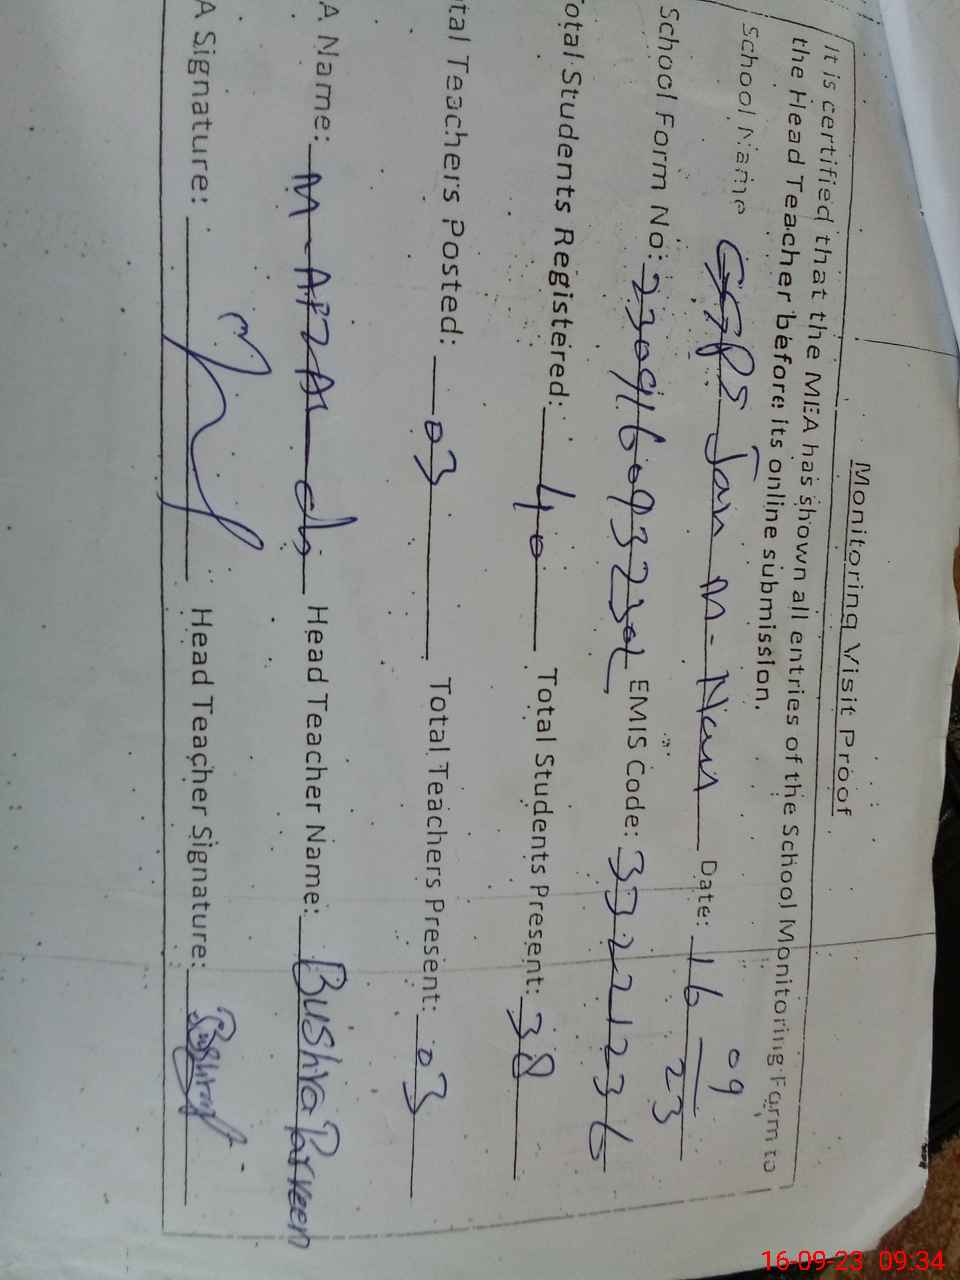 Monitoring Visit Proof
It is certified that the MEA has shown all entries of the School Monitoring Form to
the Head Teacher before its online submission.
School Name GGPS Jan M-Nawn Date: 16 09 23
School Form No: EMIS Code: 33221236
otal Students Registered: 40 Total Students Present: 38
tal Teachers Posted: 03 Total Teachers Present: 03
A Name: M-AFZAL Head Teacher Name: Bushra Parveen
A Signature: Head Teacher Signature: Bushra
16-09-23 09:34